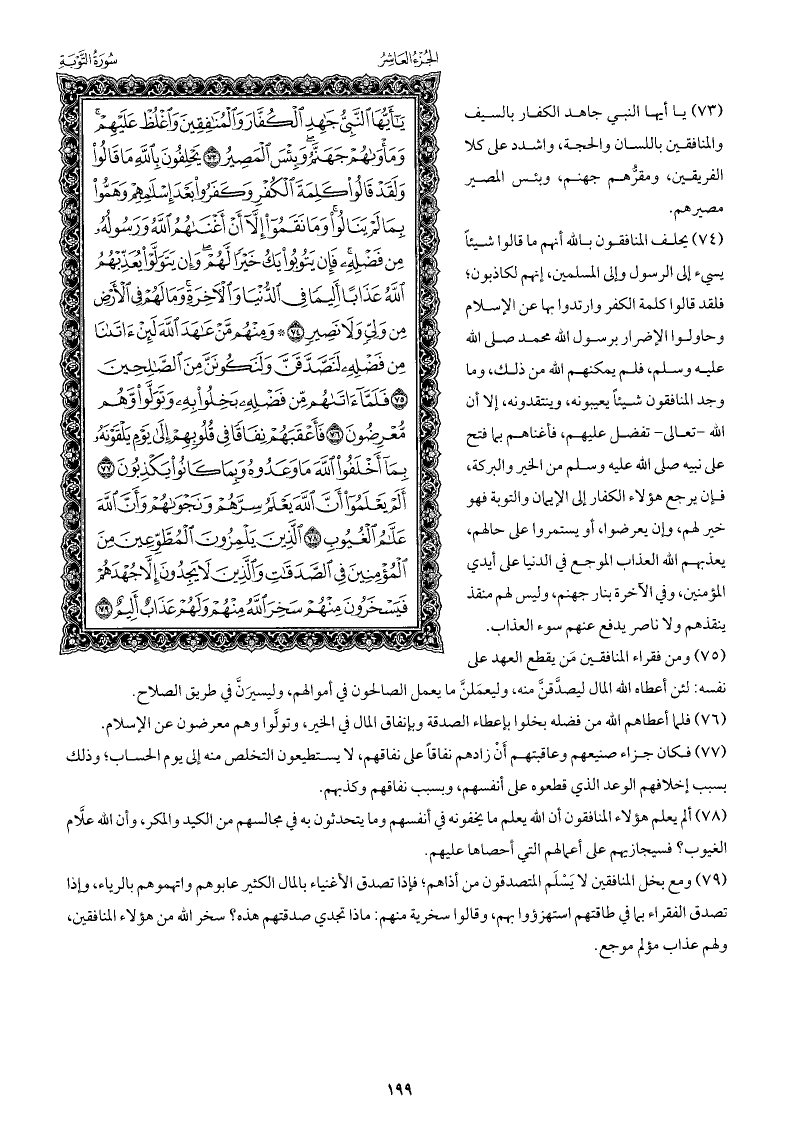 الجزء العاشر
سورة التوبة
يَـٰٓأَيُّهَا ٱلنَّبِيُّ جَـٰهِدِ ٱلۡكُفَّارَ وَٱلۡمُنَـٰفِقِينَ وَٱغۡلُظۡ عَلَيۡهِمۡۚ
وَمَأۡوَىٰهُمۡ جَهَنَّمُۖ وَبِئۡسَ ٱلۡمَصِيرُ ٧٣ يَحۡلِفُونَ بِٱللَّهِ مَا قَالُواْ
وَلَقَدۡ قَالُواْ كَلِمَةَ ٱلۡكُفۡرِ وَكَفَرُواْ بَعۡدَ إِسۡلَـٰمِهِمۡ وَهَمُّواْ
بِمَا لَمۡ يَنَالُواْۚ وَمَا نَقَمُوٓاْ إِلَّآ أَنۡ أَغۡنَىٰهُمُ ٱللَّهُ وَرَسُولُهُۥ
مِن فَضۡلِهِۦۚ فَإِن يَتُوبُواْ يَكُ خَيۡرٗا لَّهُمۡۖ وَإِن يَتَوَلَّوۡاْ يُعَذِّبۡهُمُ
ٱللَّهُ عَذَابًا أَلِيمٗا فِي ٱلدُّنۡيَا وَٱلۡأٓخِرَةِۚ وَمَا لَهُمۡ فِي ٱلۡأَرۡضِ
مِن وَلِيّٖ وَلَا نَصِيرٖ ٧٤ ۞ وَمِنۡهُم مَّنۡ عَـٰهَدَ ٱللَّهَ لَئِنۡ ءَاتَىٰنَا
مِن فَضۡلِهِۦ لَنَصَّدَّقَنَّ وَلَنَكُونَنَّ مِنَ ٱلصَّـٰلِحِينَ
٧٥ فَلَمَّآ ءَاتَىٰهُم مِّن فَضۡلِهِۦ بَخِلُواْ بِهِۦ وَتَوَلَّواْ وَّهُم
مُّعۡرِضُونَ ٧٦ فَأَعۡقَبَهُمۡ نِفَاقٗا فِي قُلُوبِهِمۡ إِلَىٰ يَوۡمِ يَلۡقَوۡنَهُۥ
بِمَآ أَخۡلَفُواْ ٱللَّهَ مَا وَعَدُوهُ وَبِمَا كَانُواْ يَكۡذِبُونَ ٧٧
أَلَمۡ يَعۡلَمُوٓاْ أَنَّ ٱللَّهَ يَعۡلَمُ سِرَّهُمۡ وَنَجۡوَىٰهُمۡ وَأَنَّ ٱللَّهَ
عَلَّـٰمُ ٱلۡغُيُوبِ ٧٨ ٱلَّذِينَ يَلۡمِزُونَ ٱلۡمُطَّوِّعِينَ مِنَ
ٱلۡمُؤۡمِنِينَ فِي ٱلصَّدَقَـٰتِ وَٱلَّذِينَ لَا يَجِدُونَ إِلَّا جُهۡدَهُمۡ
فَيَسۡخَرُونَ مِنۡهُمۡ سَخِرَ ٱللَّهُ مِنۡهُمۡ وَلَهُمۡ عَذَابٌ أَلِيمٌ ٧٩
(٧٣) يا أيها النبي جاهد الكفار بالسيف
والمنافقين باللسان والحجة، واشدد على كلا
الفريقين، ومقرُّهم جهنم، وبئس المصير
مصيرهم.
(٧٤) يحلف المنافقون بالله أنهم ما قالوا شيئاً
يسيء إلى الرسول وإلى المسلمين، إنهم لكاذبون؛
فلقد قالوا كلمة الكفر وارتدوا بها عن الإسلام
وحاولوا الإضرار برسول الله محمد صلى الله
عليه وسلم، فلم يمكنهم الله من ذلك، وما
وجد المنافقون شيئاً يعيبونه، وينتقدونه، إلا أن
الله -تعالى- تفضل عليهم، فأغناهم بما فتح
على نبيه صلى الله عليه وسلم من الخير والبركة،
فإن يرجع هؤلاء الكفار إلى الإيمان والتوبة فهو
خير لهم، وإن يعرضوا، أو يستمروا على حالهم،
يعذبهم الله العذاب الموجع في الدنيا على أيدي
المؤمنين، وفي الآخرة بنار جهنم، وليس لهم منقذ
ينقذهم ولا ناصر يدفع عنهم سوء العذاب.
(٧٥) ومن فقراء المنافقين مَن يقطع العهد على
نفسه: لئن أعطاه الله المال ليصدَّقنَّ منه، وليعمَلنَّ ما يعمل الصالحون في أموالهم، وليسيرَنَّ في طريق الصلاح.
(٧٦) فلما أعطاهم الله من فضله بخلوا بإعطاء الصدقة وبإنفاق المال في الخير، وتولَّوا وهم معرضون عن الإسلام.
(٧٧) فكان جزاء صنيعهم وعاقبتهم أَنْ زادهم نفاقاً على نفاقهم، لا يستطيعون التخلص منه إلى يوم الحساب؛ وذلك
بسبب إخلافهم الوعد الذي قطعوه على أنفسهم، وبسبب نفاقهم وكذبهم.
(٧٨) ألم يعلم هؤلاء المنافقون أن الله يعلم ما يخفونه في أنفسهم وما يتحدثون به في مجالسهم من الكيد والمكر، وأن الله علَّام
الغيوب؟ فسيجازيهم على أعمالهم التي أحصاها عليهم.
(٧٩) ومع بخل المنافقين لا يَسْلَم المتصدقون من أذاهم؛ فإذا تصدق الأغنياء بالمال الكثير عابوهم واتهموهم بالرياء، وإذا
تصدق الفقراء بما في طاقتهم استهزؤوا بهم، وقالوا سخرية منهم: ماذا تجدي صدقتهم هذه؟ سخر الله من هؤلاء المنافقين،
ولهم عذاب مؤلم موجع.
١٩٩